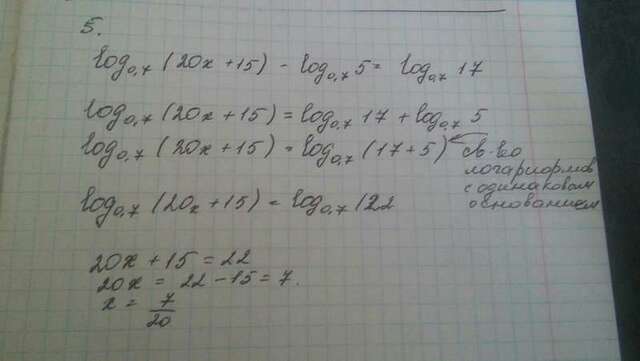 5.
log₀,₇ (20x + 15) - log₀,₇ 5 = log₀,₇ 17
log₀,₇ (20x + 15) = log₀,₇ 17 + log₀,₇ 5
log₀,₇ (20x + 15) = log₀,₇ (17 + 5)
св-во
логариормов
с одинаковом
основанием
log₀,₇ (20x + 15) = log₀,₇ 122
20x + 15 = 22
20x = 22 - 15 = 7.
x = 7/20